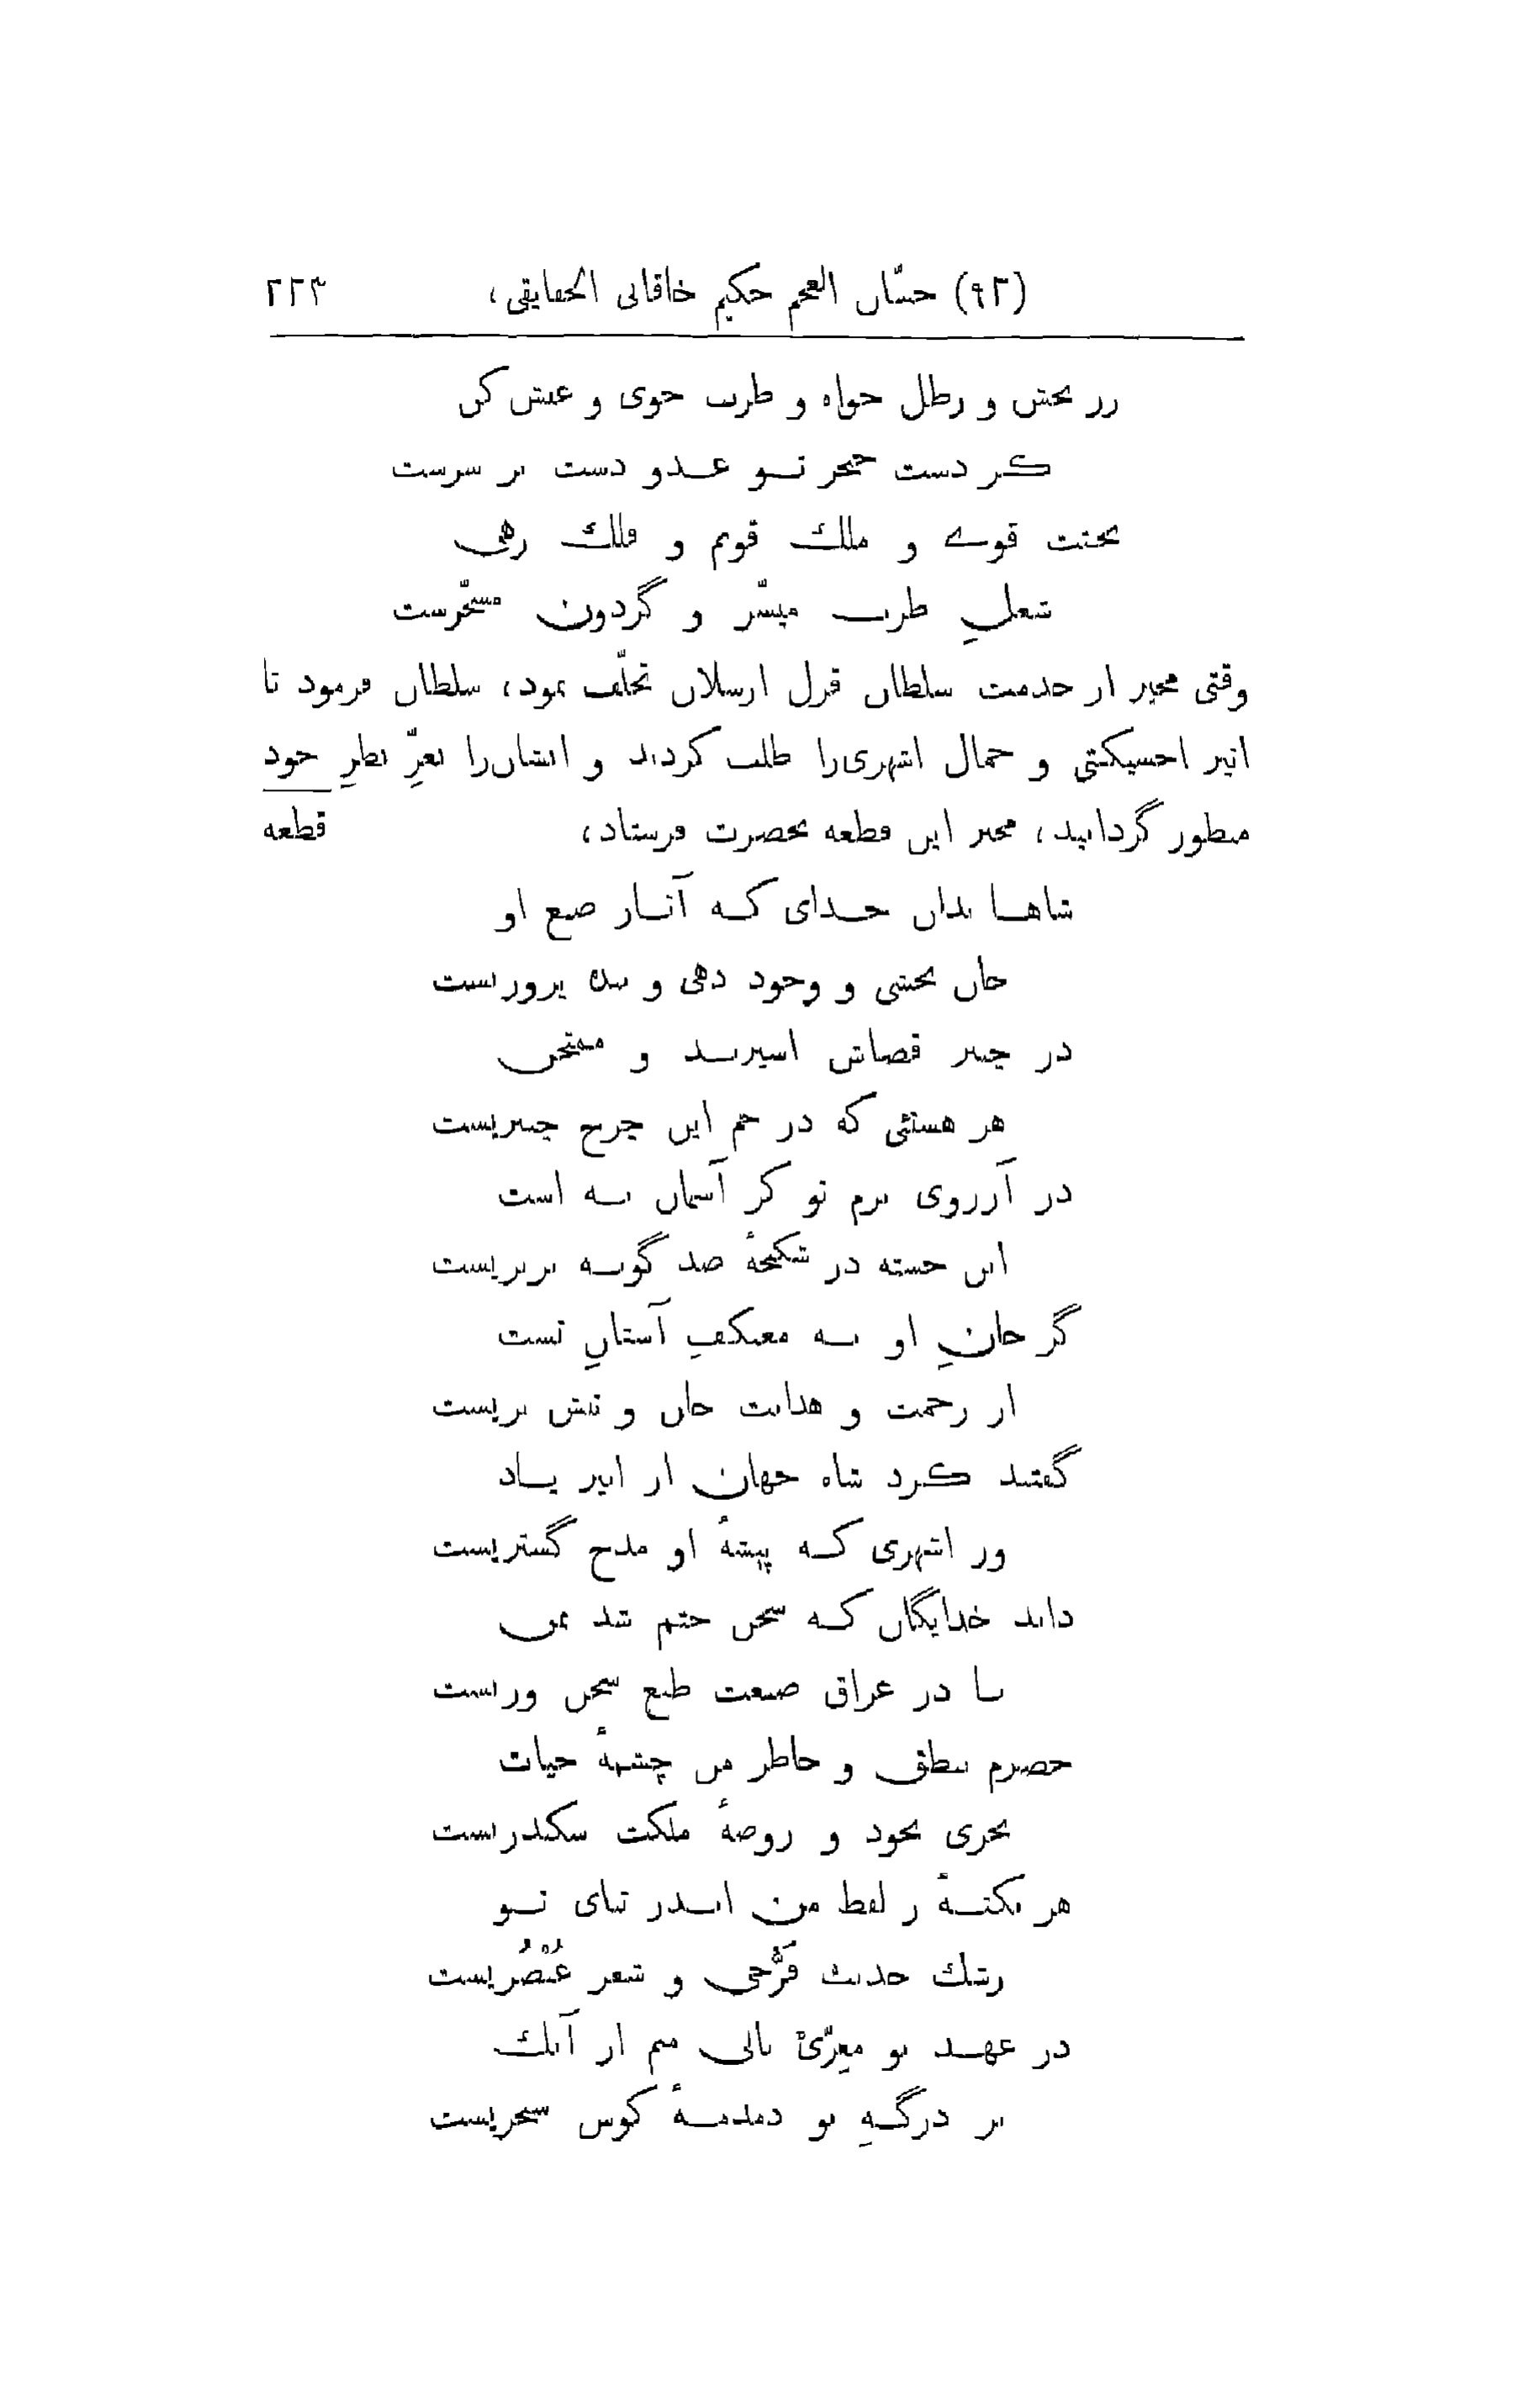 (۹۳) حسّان العجم حکیم خاقانی الحقایقی، ۲۲۳
زر بخش و رطل خواه و طرب جوی و عیش کن
کز دست خنجر تو عدو دست بر سرست
بختت قوی و ملک قویم و فلک رهی
شغلِ طرب میسّر و گردون مسخّرست
وقتی مجیر از خدمت سلطان قزل ارسلان تخلّف نمود، سلطان فرمود تا
اثیر اخسیکتی و جمال اشهری‌را طلب کردند و ایشان‌را بعزّ نظرِ خود
منظور گردانید، مجیر این قطعه بحضرت فرستاد، قطعه
شاها بدان خدای که آثار صنع او
جان بخشی و وجود دهی و بنده پروریست
در چنبر قضاش اسیرند و ممتحن
هر هستئی که در خم این چرخ چنبریست
در آرزوی بزم تو کز آسمان به است
این خسته در شکنجهٔ صد گونه بربریست
گر جانِ او نه معتکفِ آستانِ تست
از رحمت و هدایت جان و تنش بریست
گفتند کرد شاه جهان از اثیر یاد
وز اشهری که پیشهٔ او مدح گستریست
داند خدایگان که سخن ختم شد بمن
تا در عراق صنعت طبع سخن وریست
خضرم بنطق و خاطر من چشمهٔ حیات
بحری بجود و روضهٔ ملکت سکندریست
هر نکتهٔ ز لفظ من اندر ثنای تو
رشک حدیث فَرُّخی و شعر عُنْصُریست
در عهد تو معزّیٔ ثانی منم از آنک
بر درگهِ تو دمدمهٔ کوس سنجریست